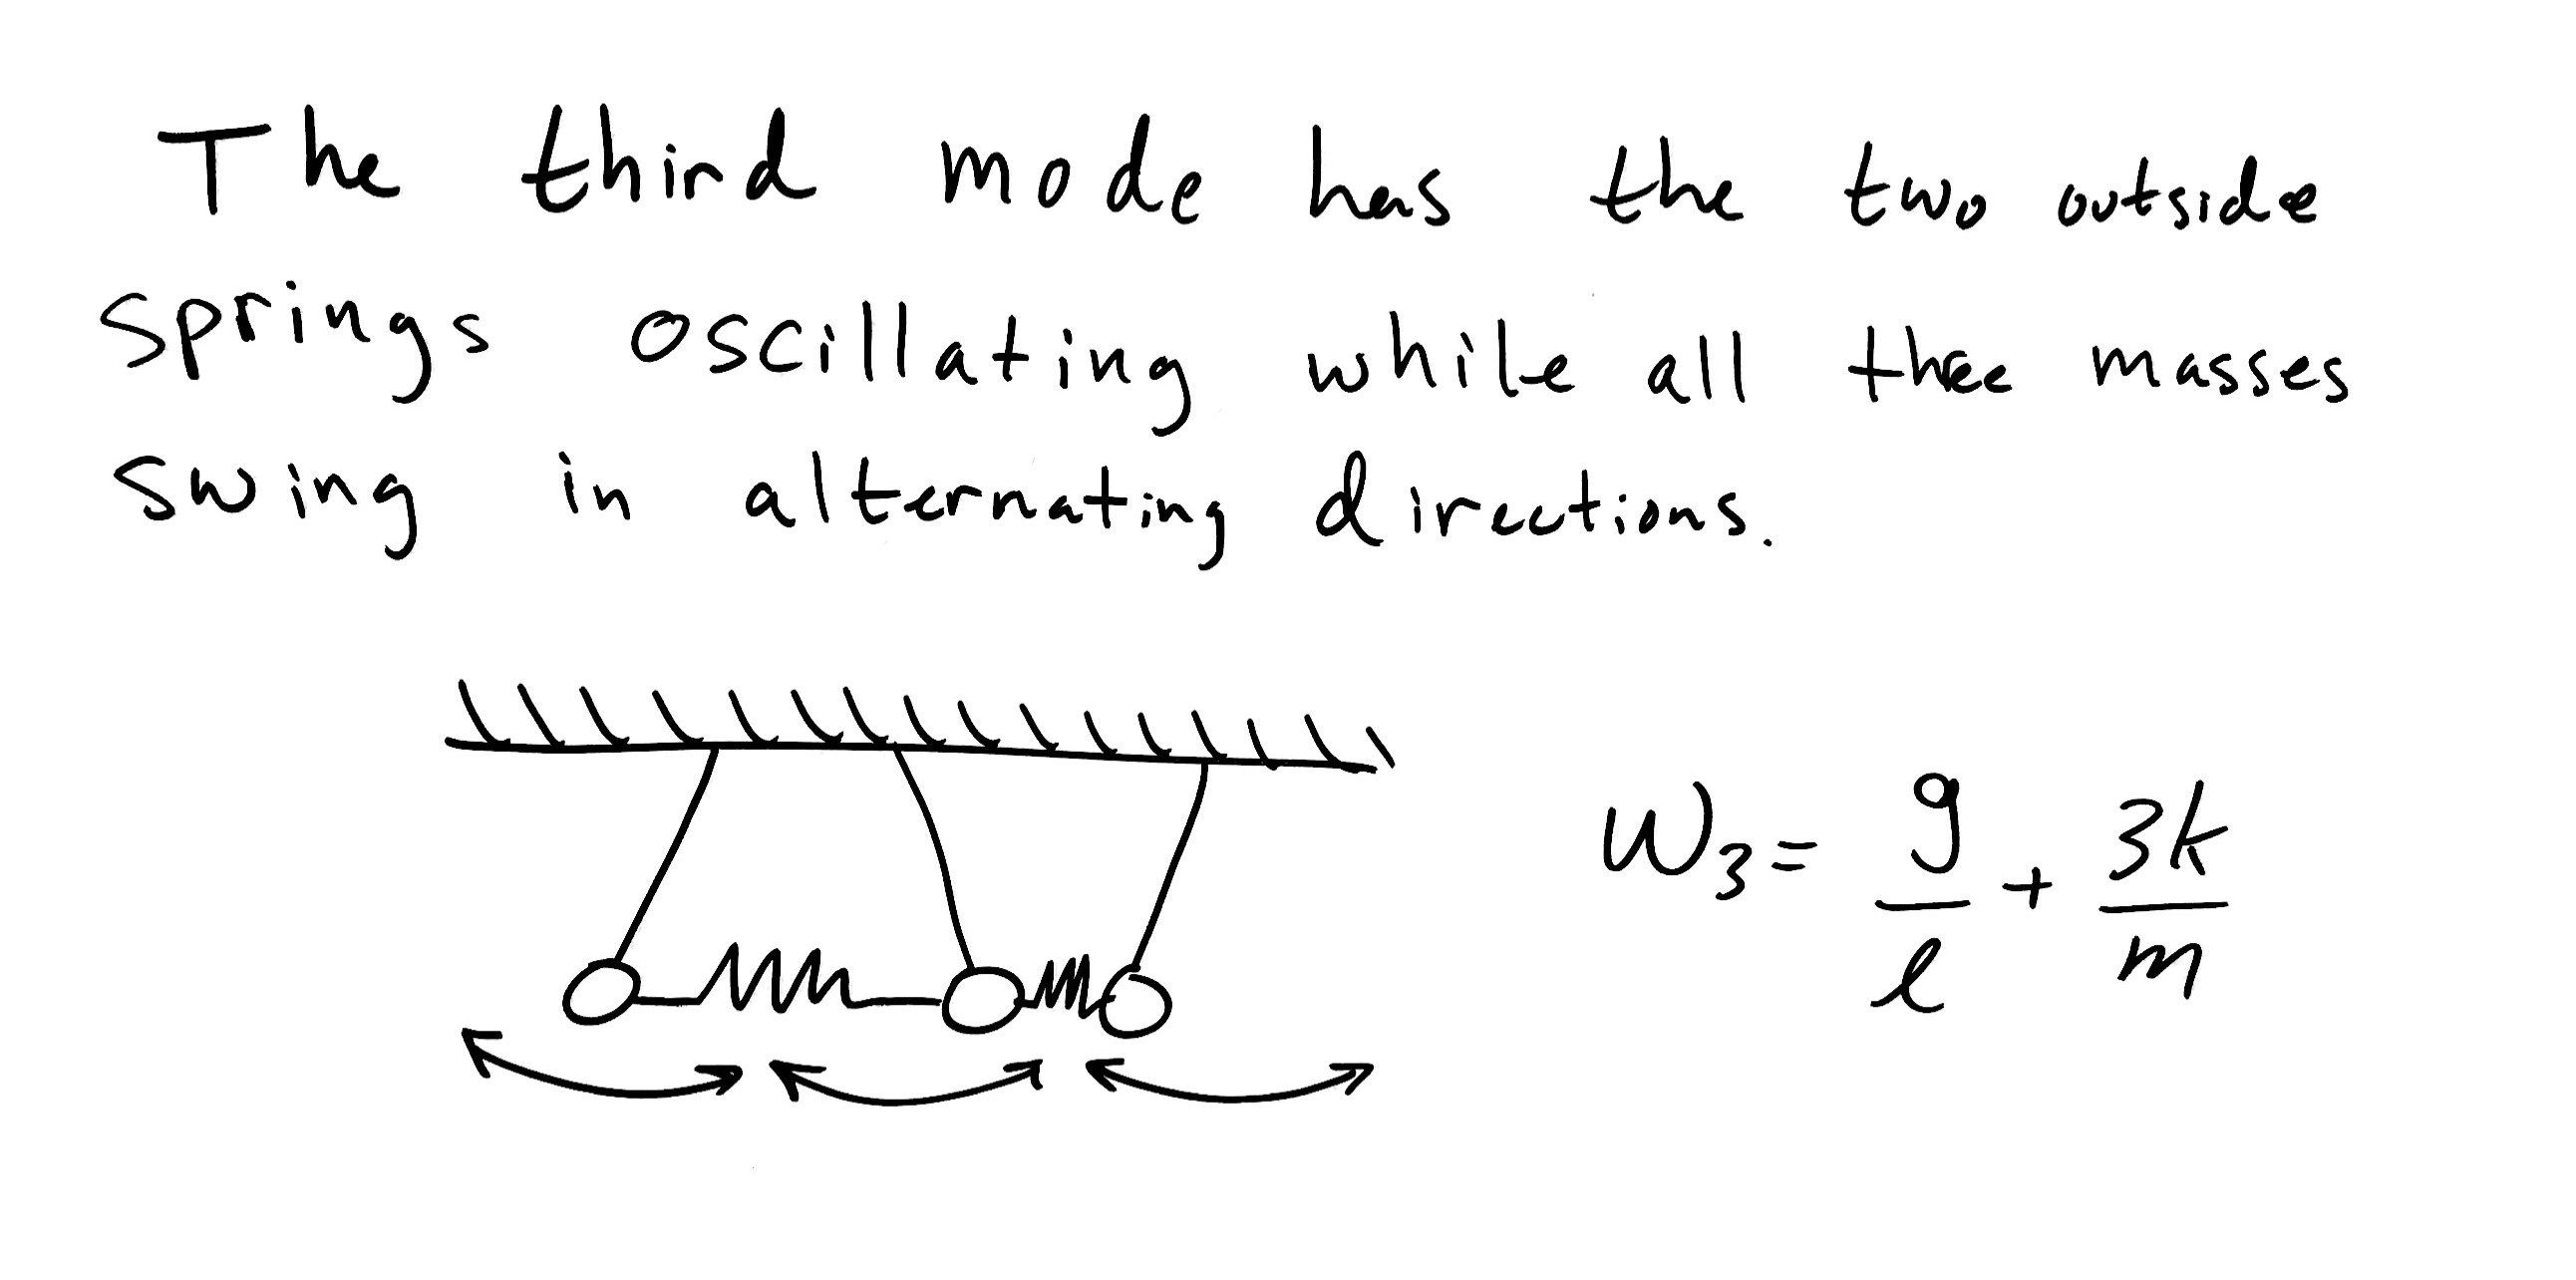 The third mode has the two outside
springs oscillating while all three masses
swing in alternating directions.
ω₃ = g/l + 3k/m